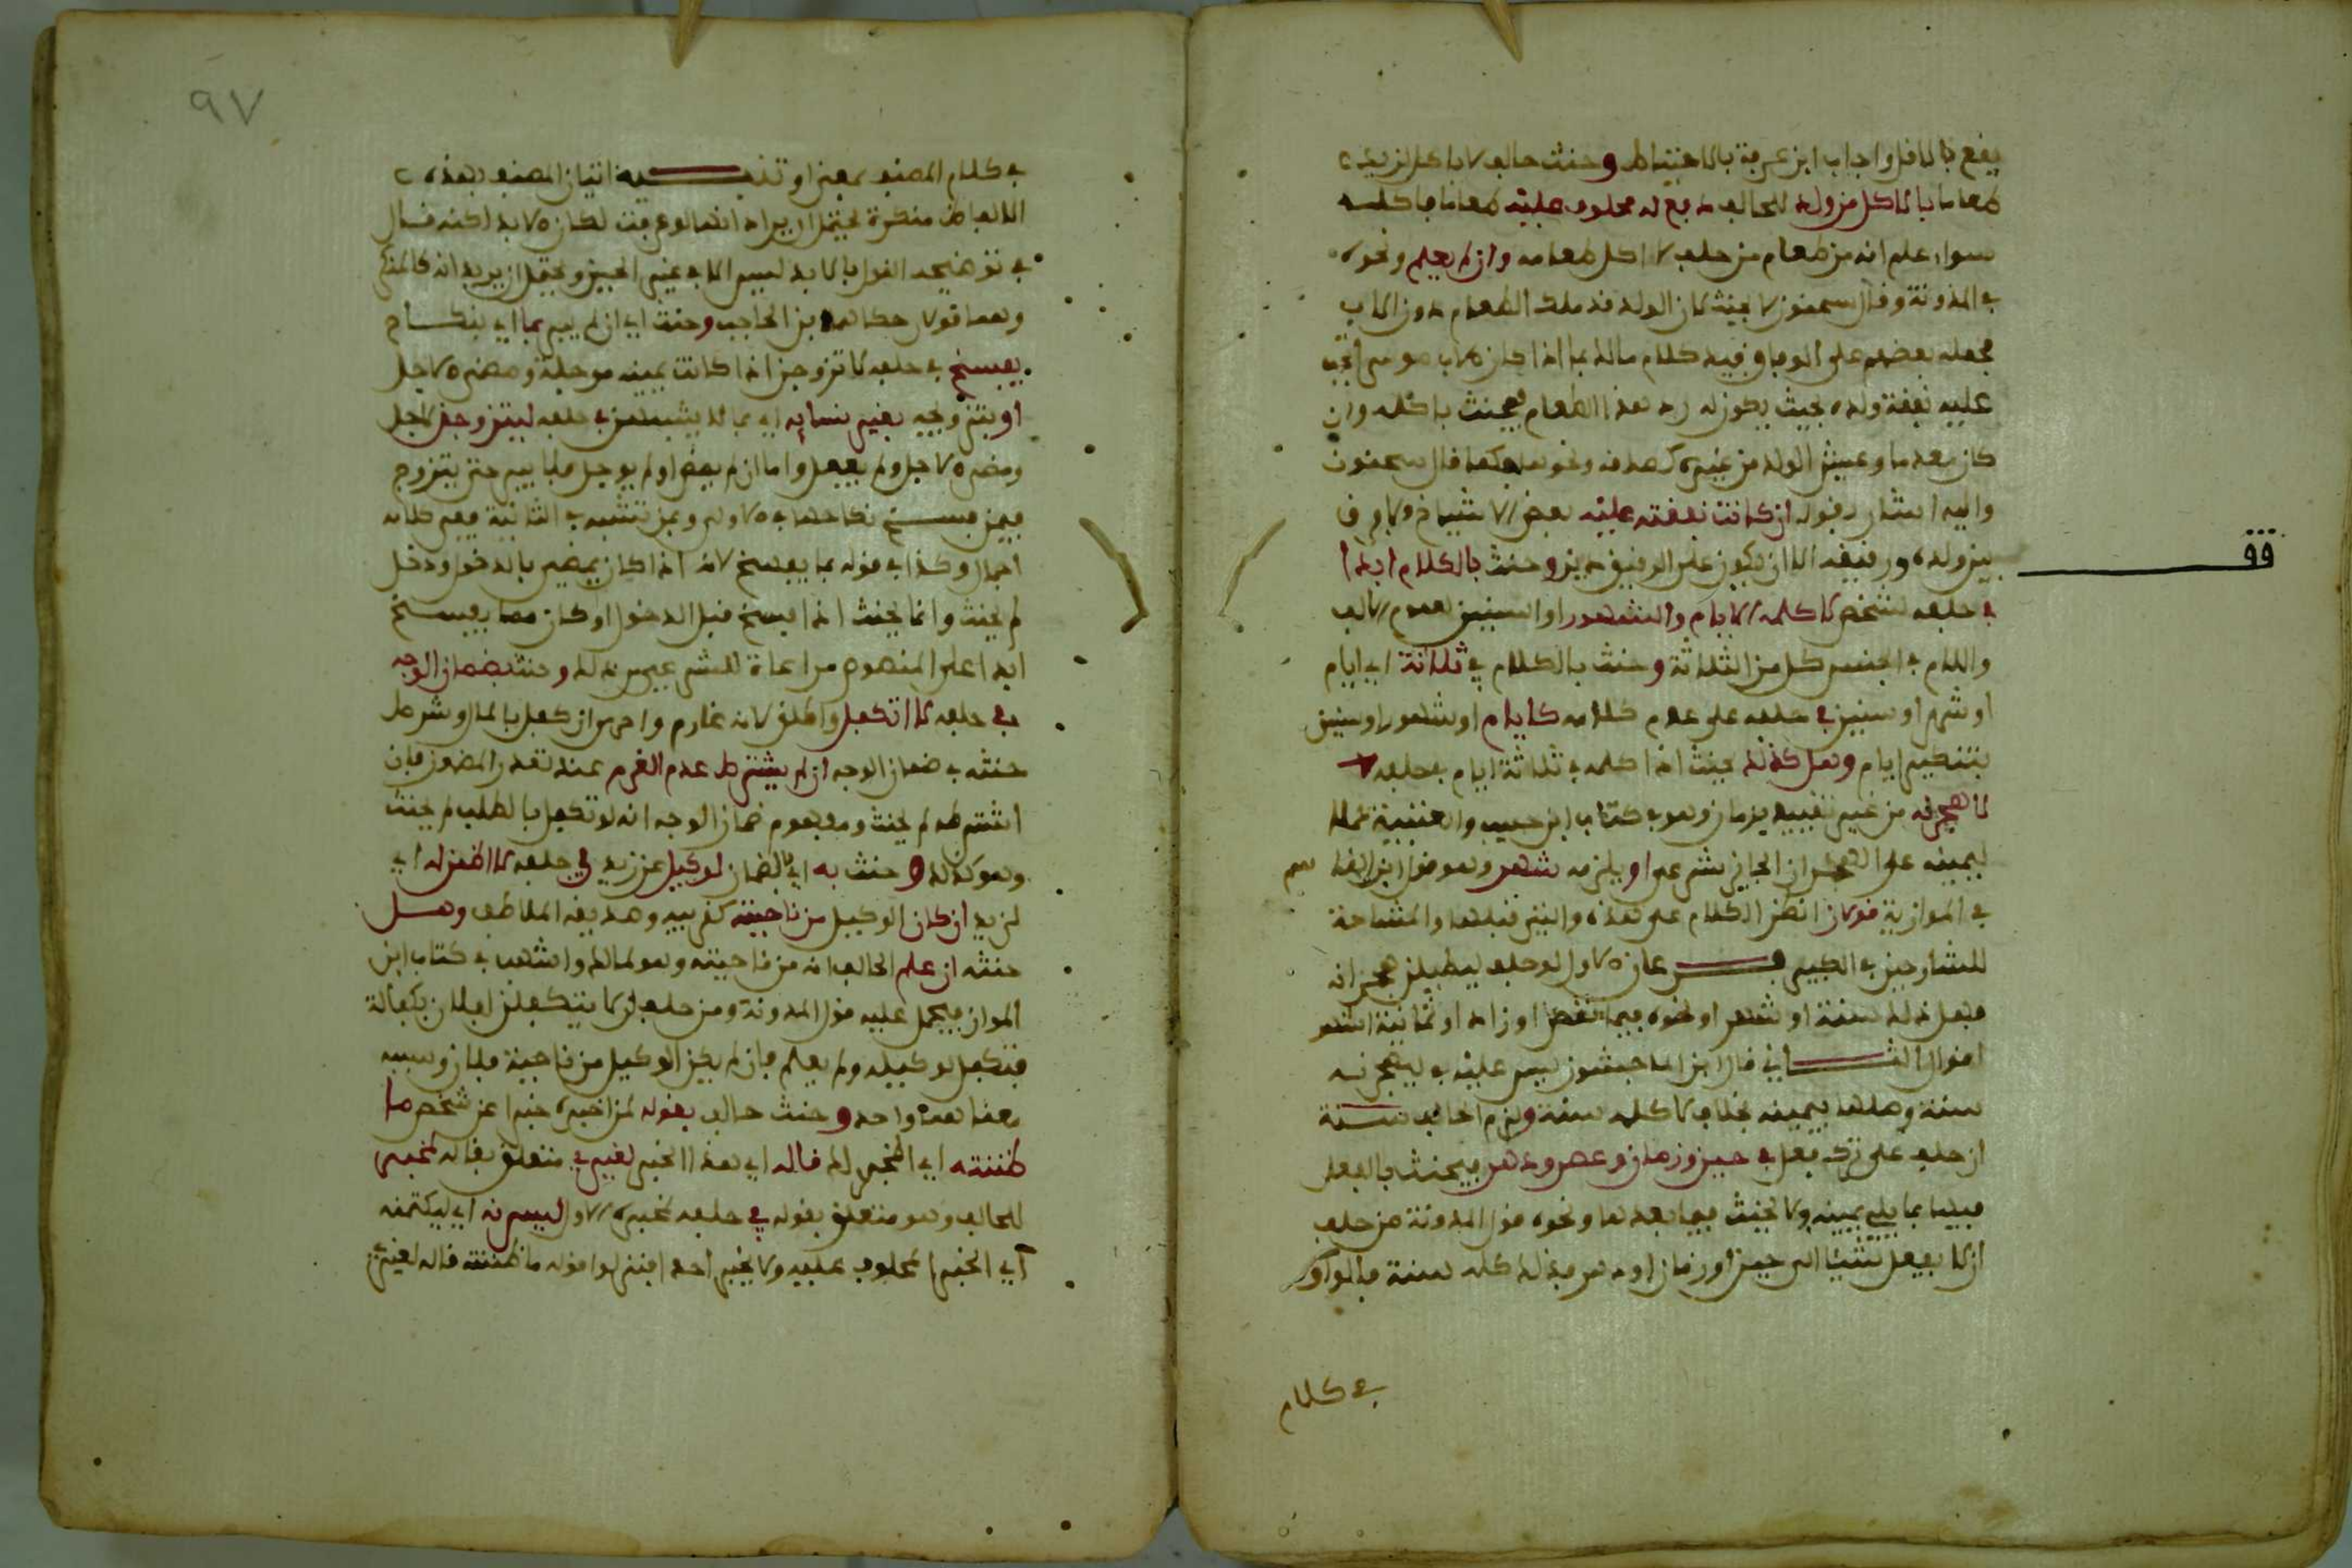 يقع بالاقل واجاب ابن عرفة بالاحتياط وحنث حالف لا اكل لزيد
طعاما بالاكل من ولد للحالف دفع له محلوف عليه طعاما فاكله
سواء علم انه من طعام من حلف لا اكل طعامه وان لم يعلم ونحوه
في المدونة وقال سحنون لا يحنث لان الولد قد ملك الطعام دون الاب
فجعله بعضهم على الوفاق وقيد كلام مالك بما اذا كان الاب موسرا تجب
عليه نفقة ولده بحيث يكون له رد هذا الطعام فيحنث باكله وان
كان معدما وعيش الولد من غيره كصدقة ونحوها هكذا قال سحنون
واليه اشار بقوله ان كانت نفقته عليه بعض الاشياخ ولا فرق
بين ولده ورقيقه الا ان يكون على الرقيق دين وحنث بالكلام ابدا
في حلفه لشخص لا كلمه الايام والشهور او السنين لعموم الالف
واللام في الجنس كل من الثلاثة وحنث بالكلام في ثلاثة اي ايام
او شهر او سنين في حلفه على عدم كلامه كايام او شهور او سنين
بتنكير ايام وهل كذلك يحنث اذا كلمه في ثلاثة ايام في حلفه
لاهجرنه من غير تقييد بزمان وهو في كتاب ابن حبيب والعتبية حملا
ليمينه على الهجران الجائز شرعا او يلزمه شهر وهو قول ابن القاسم
في الموازية قولان انظر الكلام على هذه والتي قبلها والمشاحة
للشارحين في الكبير فرعان الاول لو حلف ليطيلن هجرانه
فهل ذلك سنة او شهر او نحوه فيما نقص او زاد او ثمانية اشهر
اقوال الثاني قال ابن الماجشون ليس عليه في ليهجرنه
سنة وصلها بيمينه بخلاف لا كلمه سنة ولزم الحالف سنة
ان حلف على ترك فعل في حين وزمان وعصر ودهر فيحنث بالفعل
فيها بما يلي يمينه ولا يحنث فيما بعدها ونحوه قول المدونة من حلف
ان لا يفعل شيئا الى حين او زمان او دهر فذلك كله سنة فالواو
في كلام
٩٧
في كلام المصنف بمعنى او تنبيه اتيان المصنف بهذه
الالفاظ منكرة يحتمل ان يراد انها لو عرفت لكان الابد لكنه قال
في توضيحه القول بالابد ليس الا في غير الحين ويحتمل ان يريد انه كالمنكر
وهما قولان حكاهما ابن الحاجب وحنث اي ان لم يبر بما اي بنكاح
يفسخ في حلفه لاتزوجن اذا كانت يمينه موجلة ومضى الاجل
او بتزوجه بغير نسائه اي بما لا يشبههن في حلفه ليتزوجن لاجل
ومضى الاجل ولم يفعل واما ان لم يمض او لم يوجل فلا يبر حتى يتزوج
فيمن يفسخ نكاحها في الاولى وبمن تشبه في الثانية ففي كلامه
اجمال وكذا في قوله بما يفسخ لانه اذا كان يمضي بالدخول ودخل
لم يحنث وانما يحنث اذا فسخ قبل الدخول او كان مما يفسخ
ابدا على المنصوص مراعاة للشرعي من ذلك وحنث بضمان الوجه
في حلفه لا اتكفل واطلق لانه غارم واحرى ان كفل بالمال وشرط
حنثه في ضمان الوجه ان لم يشترط عدم الغرم عند تعذر المضمون فان
اشترطه لم يحنث ومفهوم ضمان الوجه انه لو تكفل بالطلب لم يحنث
وهو كذلك وحنث به اي بالضمان لوكيل عن زيد في حلفه لا اضمن له اي
لزيد ان كان الوكيل من ناحيته كقريبه وصديقه الملاطف وهل
حنثه ان علم الحالف انه من ناحيته وهو لمالك واشهب في كتاب ابن
المواز فيحمل عليه قول المدونة ومن حلف ان لا يتكفل لفلان بكفالة
فتكفل لوكيله ولم يعلم فان لم يكن الوكيل من ناحية فلان وسببه
معناهما واحد وحنث حالف بقوله لمن اخبره خبرا عن شخص ما
ظننته اي المخبر له قاله اي هذا الخبر لغيري متعلق بقاله لمخبر
للحالف وهو متعلق بقوله في حلفه لمخبره الاول ليسرنه اي ليكتمنه
اي الخبر المحلوف عليه ولا يخبر احدا فنزلوا قوله ما ظننته قاله لغيري